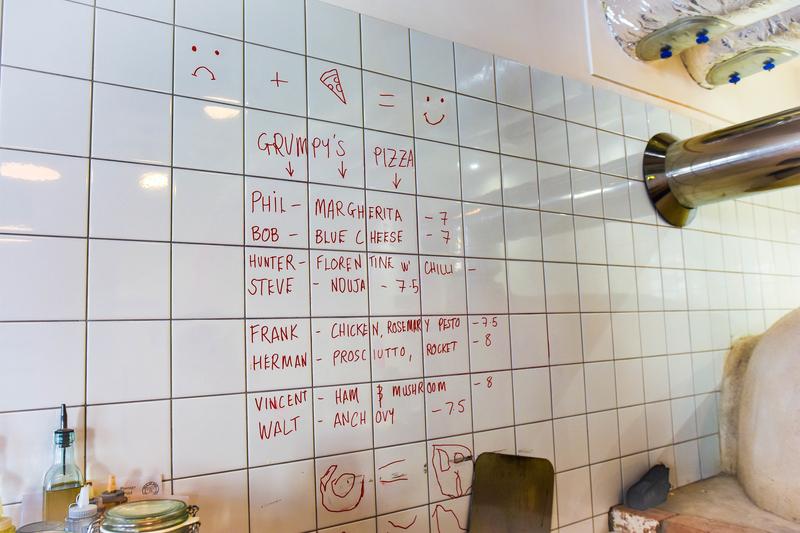 + =
GRUMPY'S PIZZA
PHIL - MARGHERITA - 7
BOB - BLUE CHEESE - 7
HUNTER - FLORENTINE W' CHILLI -
STEVE - NDUJA - 7.5
FRANK - CHICKEN, ROSEMARY PESTO - 7.5
HERMAN - PROSCIUTTO, ROCKET - 8
VINCENT - HAM & MUSHROOM - 8
WALT - ANCHOVY - 7.5